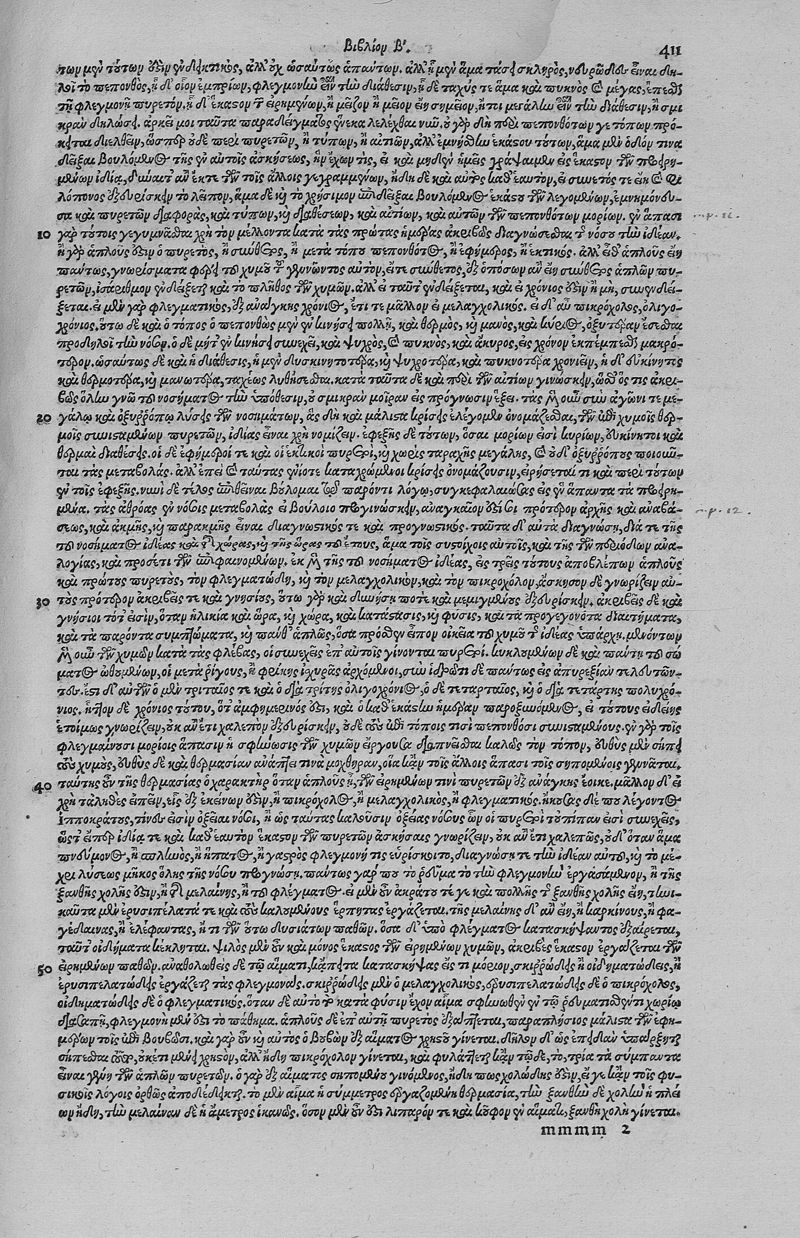 Βιβλίον Β. 411
των μὲν τούτων ἐστὶν ἐνδεικτικὸς, ἀλλ' οὐχ ὡσαύτως ἁπάντων. ἀλλ' ἡ μὲν ἅμα τάσει σκληρὸς, νευρῶδες εἶναι δη-
λοῖ τὸ πεπονθὸς, ἢ οἷον ἐμπρίων, φλεγμονὴν εἶναι τὴν διάθεσιν, ὁ δὲ ταχύς τε ἅμα καὶ πυκνὸς καὶ μέγας, ἐπὶ
τῇ φλεγμονῇ πυρετὸν, ἡ δ' ἑκάστου τῶν εἰρημένων, ἢ μεῖζον ἢ μεῖον εἴη σημεῖον, ἤτοι μεγάλην εἶναι τὴν διάθεσιν, ἢ σμι-
κρὰν δηλώσει. ἀρκεῖ μοι ταῦτα παραδείγματος ἕνεκα λελέχθαι νῦν. οὐ γὰρ δὴ περὶ πεπονθότων γε τόπων πρό-
κειται διελθεῖν, ὥσπερ οὐδὲ περὶ πυρετῶν, ἢ τύπων, ἢ αἰτιῶν, ἀλλ' ἐμνήσθην ἑκάστου τούτων, ἅμα μὲν ὁδόν τινα
δεῖξαι βουλόμενος τῆς ἐν αὐτοῖς ἀσκήσεως, ἣν ἔχων τις, εἰ καὶ μηδὲν ἡμεῖς γράψαιμεν εἰς ἕκαστον τῶν προειρη-
μένων ἰδίᾳ, δύναιτ' ἂν ἔκ τε τῶν τοῖς ἄλλοις γεγραμμένων, ἤδη δὲ καὶ αὐτὸς καθ' ἑαυτὸν, εἰ συνετός τε εἴη καὶ φι
λόπονος ἐξευρίσκειν τὸ λεῖπον, ἅμα δὲ καὶ τὸ χρήσιμον ἐπιδεῖξαι βουλόμενος ἑκάστου τῶν λεγομένων, ἐμνημόνευ-
σα καὶ πυρετῶν διαφορᾶς, καὶ τύπων, καὶ διαθέσεων, καὶ αἰτίων, καὶ αὐτῶν τῶν πεπονθότων μορίων. ἐν ἅπασι
10 γὰρ τούτοις γεγυμνάσθαι χρὴ τὸν μέλλοντα κατὰ τὰς πρώτας ἡμέρας ἀκριβῶς διαγνώσεσθαι τοῦ νόσου τὴν ἰδέαν.
ἢ γὰρ ἁπλοῦς ἐστιν ὁ πυρετὸς, ἢ σύνθετος, ἢ μετὰ τόπου πεπονθότος, ἢ ἐφήμερος, ἢ ἑκτικός. ἀλλ' εἴθ' ἁπλοῦς εἴη
πάντως, γνωρίσματα φέρει τοῦ χυμοῦ τοῦ γεννῶντος αὐτὸν, εἴτε σύνθετος, ἐξ ὁπόσων ἂν εἴη σύνθετος ἁπλῶν πυ-
ρετῶν, ἰσάριθμον ἐνδείξεται καὶ τὸ πλῆθος τῶν χυμῶν. ἀλλ' εἰ ταῦτ' ἐνδείξεται, καὶ εἰ χρόνιός ἐστιν ἢ μὴ, συνενδεί-
ξεται. εἰ μὲν γὰρ φλεγματικὸς, ἐξ ἀνάγκης χρόνιος, ἔτι τε μᾶλλον εἰ μελαγχολικός. εἰ δ' αὖ πικρόχολος, ὀλιγο-
χρόνιος. οὕτω δὲ καὶ ὁ τόπος ὁ πεπονθὼς μὲν ἐν κινήσει πολλῇ, καὶ θερμὸς, καὶ μανὸς, καὶ κύριος, ὀξυτέραν ἔσεσθαι
προδηλοῖ τὴν νόσον. ὁ δὲ μήτ' ἐν κινήσει συνεχεῖ, καὶ ψυχρὸς, καὶ πυκνὸς, καὶ ἄκυρος, εἰς χρόνον ἐκπέμπεσθαι μακρό-
τερον. ὡσαύτως δὲ καὶ ἡ διάθεσις, ἡ μὲν δυσκινητοτέρα, καὶ ψυχροτέρα, καὶ πυκνοτέρα χρονίζειν, ἡ δ' εὐκίνητος
καὶ θερμοτέρα, καὶ μανωτέρα, ταχέως λυθήσεσθαι. κατὰ ταῦτα δὲ καὶ περὶ τῶν αἰτίων γινώσκειν, ὥσθ' ὅς τις ἀκρι-
βῶς ὅλην γνῷ τοῦ νοσήματος τὴν ὑπόθεσιν, οὐ σμικρὰν μοῖραν εἰς πρόγνωσιν ἕξει. τὰς μὲν οὖν σὺν ἀγῶνι τε με-
20 γάλῳ καὶ ὀξυρρόπῳ λύσεις τῶν νοσημάτων, ἃς δὴ καὶ μάλιστα κρίσεις ἐλέγομεν ὀνομάζεσθαι, τῶν ἐπὶ χυμοῖς θερ-
μοῖς συνισταμένων πυρετῶν, ἰδίας εἶναι χρὴ νομίζειν. ἐφεξῆς δὲ τούτων, ὅσαι μορίων εἰσὶ κυρίων, εὐκίνητοι καὶ
θερμαὶ διαθέσεις. οἱ δὲ ἐφήμεροί τε καὶ οἱ ἑκτικοὶ πυρετοὶ, καὶ χωρὶς ταραχῆς μεγάλης, καὶ οὐδ' ὀξυρρόπους ποιοῦν-
ται τὰς μεταβολάς. ἀλλ' ἐπεὶ καὶ ταύτας ἐνίοτε καταχρώμενοι κρίσεις ὀνομάζουσιν, εἰρήσεταί τι καὶ περὶ τούτων
ἐν τοῖς ἐφεξῆς. νυνὶ δὲ τέλος ἐπιθεῖναι βούλομαι τῷ παρόντι λόγῳ, συγκεφαλαιώσας εἰς ἓν ἅπαντα τὰ προειρη-
μένα. τὰς ἀθρόας ἐν νόσοις μεταβολὰς εἰ βούλοιο προγινώσκειν, ἀναγκαῖόν ἐστί σοι πρότερον ἀρχῆς καὶ ἀναβά-
σεως, καὶ ἀκμῆς, καὶ παρακμῆς εἶναι διαγνωστικός τε καὶ προγνωστικός. ταῦτα δ' αὐτὰ διαγνώσῃ, διά τε τῆς
τοῦ νοσήματος ἰδέας καὶ τῆς χώρας, καὶ τῆς ὥρας τοῦ ἔτους, ἅμα τοῖς συστοίχοις αὐτοῖς, καὶ τῆς τῶν περιόδων ἀνα-
λογίας, καὶ προσέτι τῶν ἐπιφαινομένων. ἐκ μὲν τῆς τοῦ νοσήματος ἰδέας, εἰς τρεῖς τόπους ἀποβλέπων ἁπλοῦς
καὶ πρώτους πυρετοὺς, τὸν φλεγματώδη, καὶ τὸν μελαγχολικὸν, καὶ τὸν πικρόχολον, ἄσκησον δὲ γνωρίζειν αὐ-
30 τοὺς πρότερον ἀκριβεῖς τε καὶ γνησίους, οὕτω γὰρ καὶ δυνήσῃ ποτὲ καὶ μεμιγμένους ἐξευρίσκειν. ἀκριβεῖς δὲ καὶ
γνήσιοι τότ' εἰσὶν, ὅταν ἡλικία καὶ ὥρα, καὶ χώρα, καὶ κατάστασις, καὶ φύσις, καὶ τὰ προγεγονότα διαιτήματα,
καὶ τὰ παρόντα συμπτώματα, καὶ πάνθ' ἁπλῶς, ὅσα πρόσθεν εἶπον οἰκεῖα τοῦ χυμοῦ τῆς ἰδέας ὑπάρχῃ. μενόντων
μὲν οὖν τῶν χυμῶν κατὰ τὰς φλέβας, οἱ συνεχεῖς ἐπ' αὐτοῖς γίνονται πυρετοί. κυκλουμένων δὲ καὶ πάντῃ τοῦ σώ
ματος ὠθουμένων, οἱ μετὰ ῥίγους, ἢ φρίκης ἰσχυρᾶς ἀρχόμενοι, σὺν ἱδρῶτι δὲ πάντως εἰς ἀπυρεξίαν τελευτῶν-
τες. ἔστι δ' αὐτῶν ὁ μὲν τριταῖος τε καὶ ὁ διὰ τρίτης ὀλιγοχρόνιος. ὁ δὲ τεταρταῖος, καὶ ὁ διὰ τετάρτης πολυχρό-
νιος. ἧττον δὲ χρόνιος τούτου, ὅτ' ἀμφημερινός ἐστι, καὶ ὁ καθ' ἑκάστην ἡμέραν παροξυνόμενος, εἰ τούτους εἰδείης
ἑτοίμως γνωρίζειν, οὐκ ἂν ἔτι χαλεπὸν ἐξευρίσκειν, οὐδὲ τοὺς ἐπὶ τόποις τισὶ πεπονθόσι συνισταμένους. ἐν γὰρ τοῖς
φλεγμαίνουσι μορίοις ἅπασιν ἡ σφήνωσις τῶν χυμῶν εἴργουσα διαπνεῖσθαι καλῶς τὸν τόπον, εὐθὺς μὲν σήπει
τοὺς χυμοὺς, εὐθὺς δὲ καὶ θερμασίαν ἀνάπτει τινὰ μοχθηρὰν, οἵα κἀν τοῖς ἄλλοις ἅπασι τοῖς σηπομένοις γεννᾶται.
40 ταύτης οὖν τῆς θερμασίας ὁ χαρακτὴρ ὅταν ἁπλοῦς ᾖ, τῶν εἰρημένων τινὶ πυρετῶν ἐξ ἀνάγκης ἔοικε. μᾶλλον δ' εἰ
χρὴ τἀληθὲς εἰπεῖν, εἷς ἐξ ἐκείνων ἐστὶν, ἢ πικρόχολος, ἢ μελαγχολικὸς, ἢ φλεγματικός. ἤκουσας δέ που λέγοντος
Ἱπποκράτους, τίνες εἰσὶν ὀξεῖαι νόσοι, ἢ ὡς ταύτας καλοῦσιν ὀξείας νόσους ὧν οἱ πυρετοὶ τοὐπίπαν εἰσὶ συνεχεῖς,
ὥστ' εἴπερ ἰδίᾳ τε καὶ καθ' ἑαυτὸν ἕκαστον τῶν πυρετῶν ἀσκήσαις γνωρίζειν, οὐκ ἂν ἔτι χαλεπῶς, οὐδ' ὅταν ἅμα
πνεύμονος, ἢ σπληνὸς, ἢ ἥπατος, ἢ γαστρὸς φλεγμονῇ τις εὑρίσκοιτο, διαγνώσῃ τε τὴν ἰδέαν αὐτοῦ, καὶ τὸ μέ-
χρι λύσεως μῆκος ὅλης τῆς νόσου προγνώσῃ. πάντως γάρ που τὸ ῥεῦμα τὸ τὴν φλεγμονὴν ἐργασάμενον, ἢ τῆς
ξανθῆς χολῆς ἐστιν, ἢ τῆς μελαίνης, ἢ τοῦ φλέγματος. εἰ μὲν οὖν ἀκράτου τέ γε καὶ πολλῆς τῆς ξανθῆς χολῆς εἴη, τηνι-
καῦτα μὲν ἐρυσιπέλατά τε καὶ τοὺς καλουμένους ἕρπητας ἐργάζεται. τῆς μελαίνης δ' ἂν εἴη, ἢ καρκίνους, ἢ φα-
γεδαίνας, ἢ ἐλέφαντας, ἤ τι τῶν οὕτω δυσιάτων παθῶν. ὅσα δ' ὑπὸ φλέγματος κατασκήψαντος ἐξαίρεται,
ταῦτ' οἰδήματα κέκληται. ψιλὸς μὲν οὖν καὶ μόνος ἕκαστος τῶν εἰρημένων χυμῶν, ἀκριβὲς ἕκαστον ἐργάζεται τῶν
50 εἰρημένων παθῶν. ἀναθολωθεὶς δὲ τῷ αἵματι, κἄπειτα κατασκήψας εἴς τι μόριον, σκιρρώδεις ἢ οἰδηματώδεις, ἢ
ἐρυσιπελατώδεις ἐργάζεται τὰς φλεγμονάς. σκιρρώδεις μὲν ὁ μελαγχολικὸς, ἐρυσιπελατώδεις δὲ ὁ πικρόχολος,
οἰδηματώδεις δὲ ὁ φλεγματικός. ὅταν δὲ αὐτὸ τὸ κατὰ φύσιν ἔχον αἷμα σφηνωθὲν ἐν τῷ ῥευματισθέντι χωρίῳ
διασαπῇ, φλεγμονὴ μέν ἐστι τὸ πάθημα. ἁπλοῦς δὲ ἐπ' αὐτῇ πυρετὸς ἐξάπτεται, παραπλήσιος μάλιστα τῶν ἐφη-
μέρων τοῖς ἐπὶ βουβῶσι. καὶ γὰρ οὖν καὶ αὐτὸς ὁ βουβὼν ἐξ αἵματος χρηστοῦ γίνεται. δῆλον δ' ὡς ἐπειδὰν ὑπάρξηται
σήπεσθαι τοῦτο, οὐκέτι μὲν χρηστὸν, ἀλλ' ἤδη πικρόχολον γίνεται, καὶ φυλάττεται κἀν τῷδε, τὸ, τρία τὰ σύμπαντα
εἶναι γένη τῶν ἁπλῶν πυρετῶν. ὁ γὰρ ἐξ αἵματος σηπομένου γινόμενος, ἤδη πως χολώδης ἐστὶν, εἴ γε κἀν τοῖς φυ-
σικοῖς λόγοις ὀρθῶς ἀποδέδεικται. τὸ μὲν αἷμα ἡ σύμμετρος ἐργαζομένη θερμασία, τὴν ξανθὴν δὲ χολὴν ἡ πλεί
ων ἤδη, τὴν μέλαιναν δὲ ἡ ἄμετρος ἱκανῶς. ὅσον μὲν οὖν ἐστι λιπαρόν τε καὶ κοῦφον ἐν αἵματι, ξανθὴ χολὴ γίνεται.
mmmm 2